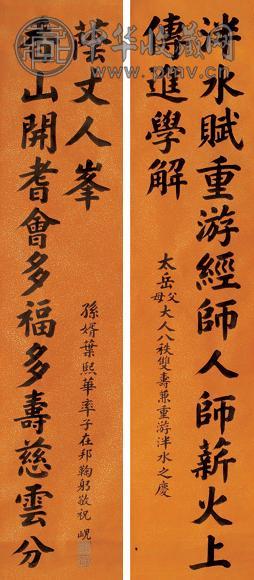 泮水賦重游經師人師薪火上
傳進學解
太岳父母大人八秩雙壽兼重游泮水之慶
香山開耆會多福多壽慈雲分
蔭丈人峯
孫婿葉熙華率子在邦鞠躬敬祝 峴
中华收藏网
www.pmv.cn